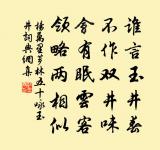 谁言玉井春
不作双井味
会有眠云客
领略两相似
椿万里梦林五十咏玉
井词典网集